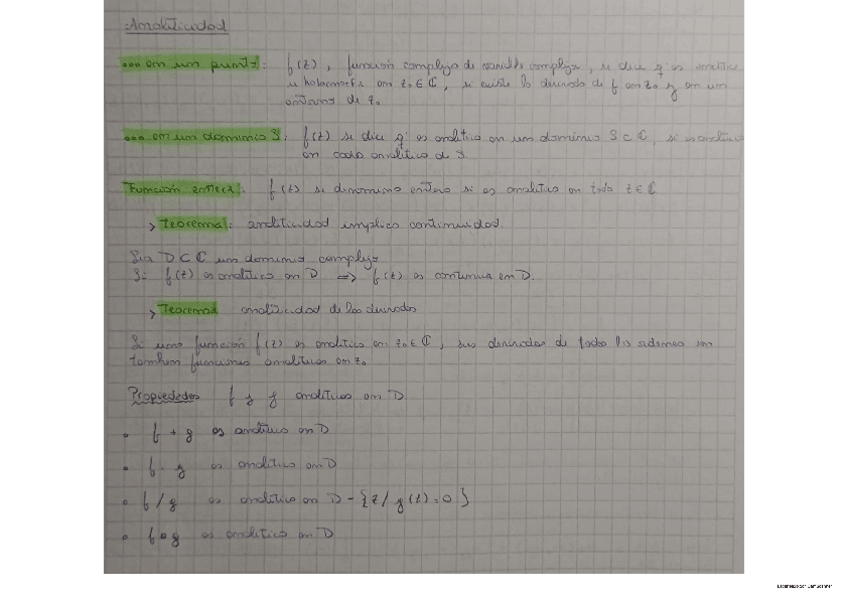 Analiticidad
... en un punto: f(z), función compleja de variable compleja, se dice q' es analítica
u holomorfa en z₀ ∈ ℂ, si existe la derivada de f en z₀ y en un
entorno de z₀
... en un dominio S: f(z) se dice q' es analítica en un dominio S ⊂ ℂ, si es analítica
en cada analítico de S.
Función entera: f(z) se denomina entera si es analítica en todo z ∈ ℂ
> Teorema: analiticidad implica continuidad.
Sea D ⊂ ℂ un dominio complejo
Si f(z) es analítica en D ⟹ f(z) es continua en D.
> Teorema analiticidad de las derivadas
Si una función f(z) es analítica en z₀ ∈ ℂ, sus derivadas de todos los órdenes son
también funciones analíticas en z₀
Propiedades f y g analíticas en D
• f + g es analítica en D
• f · g es analítica en D
• f / g es analítica en D - {z / g(z) = 0}
• f ∘ g es analítica en D